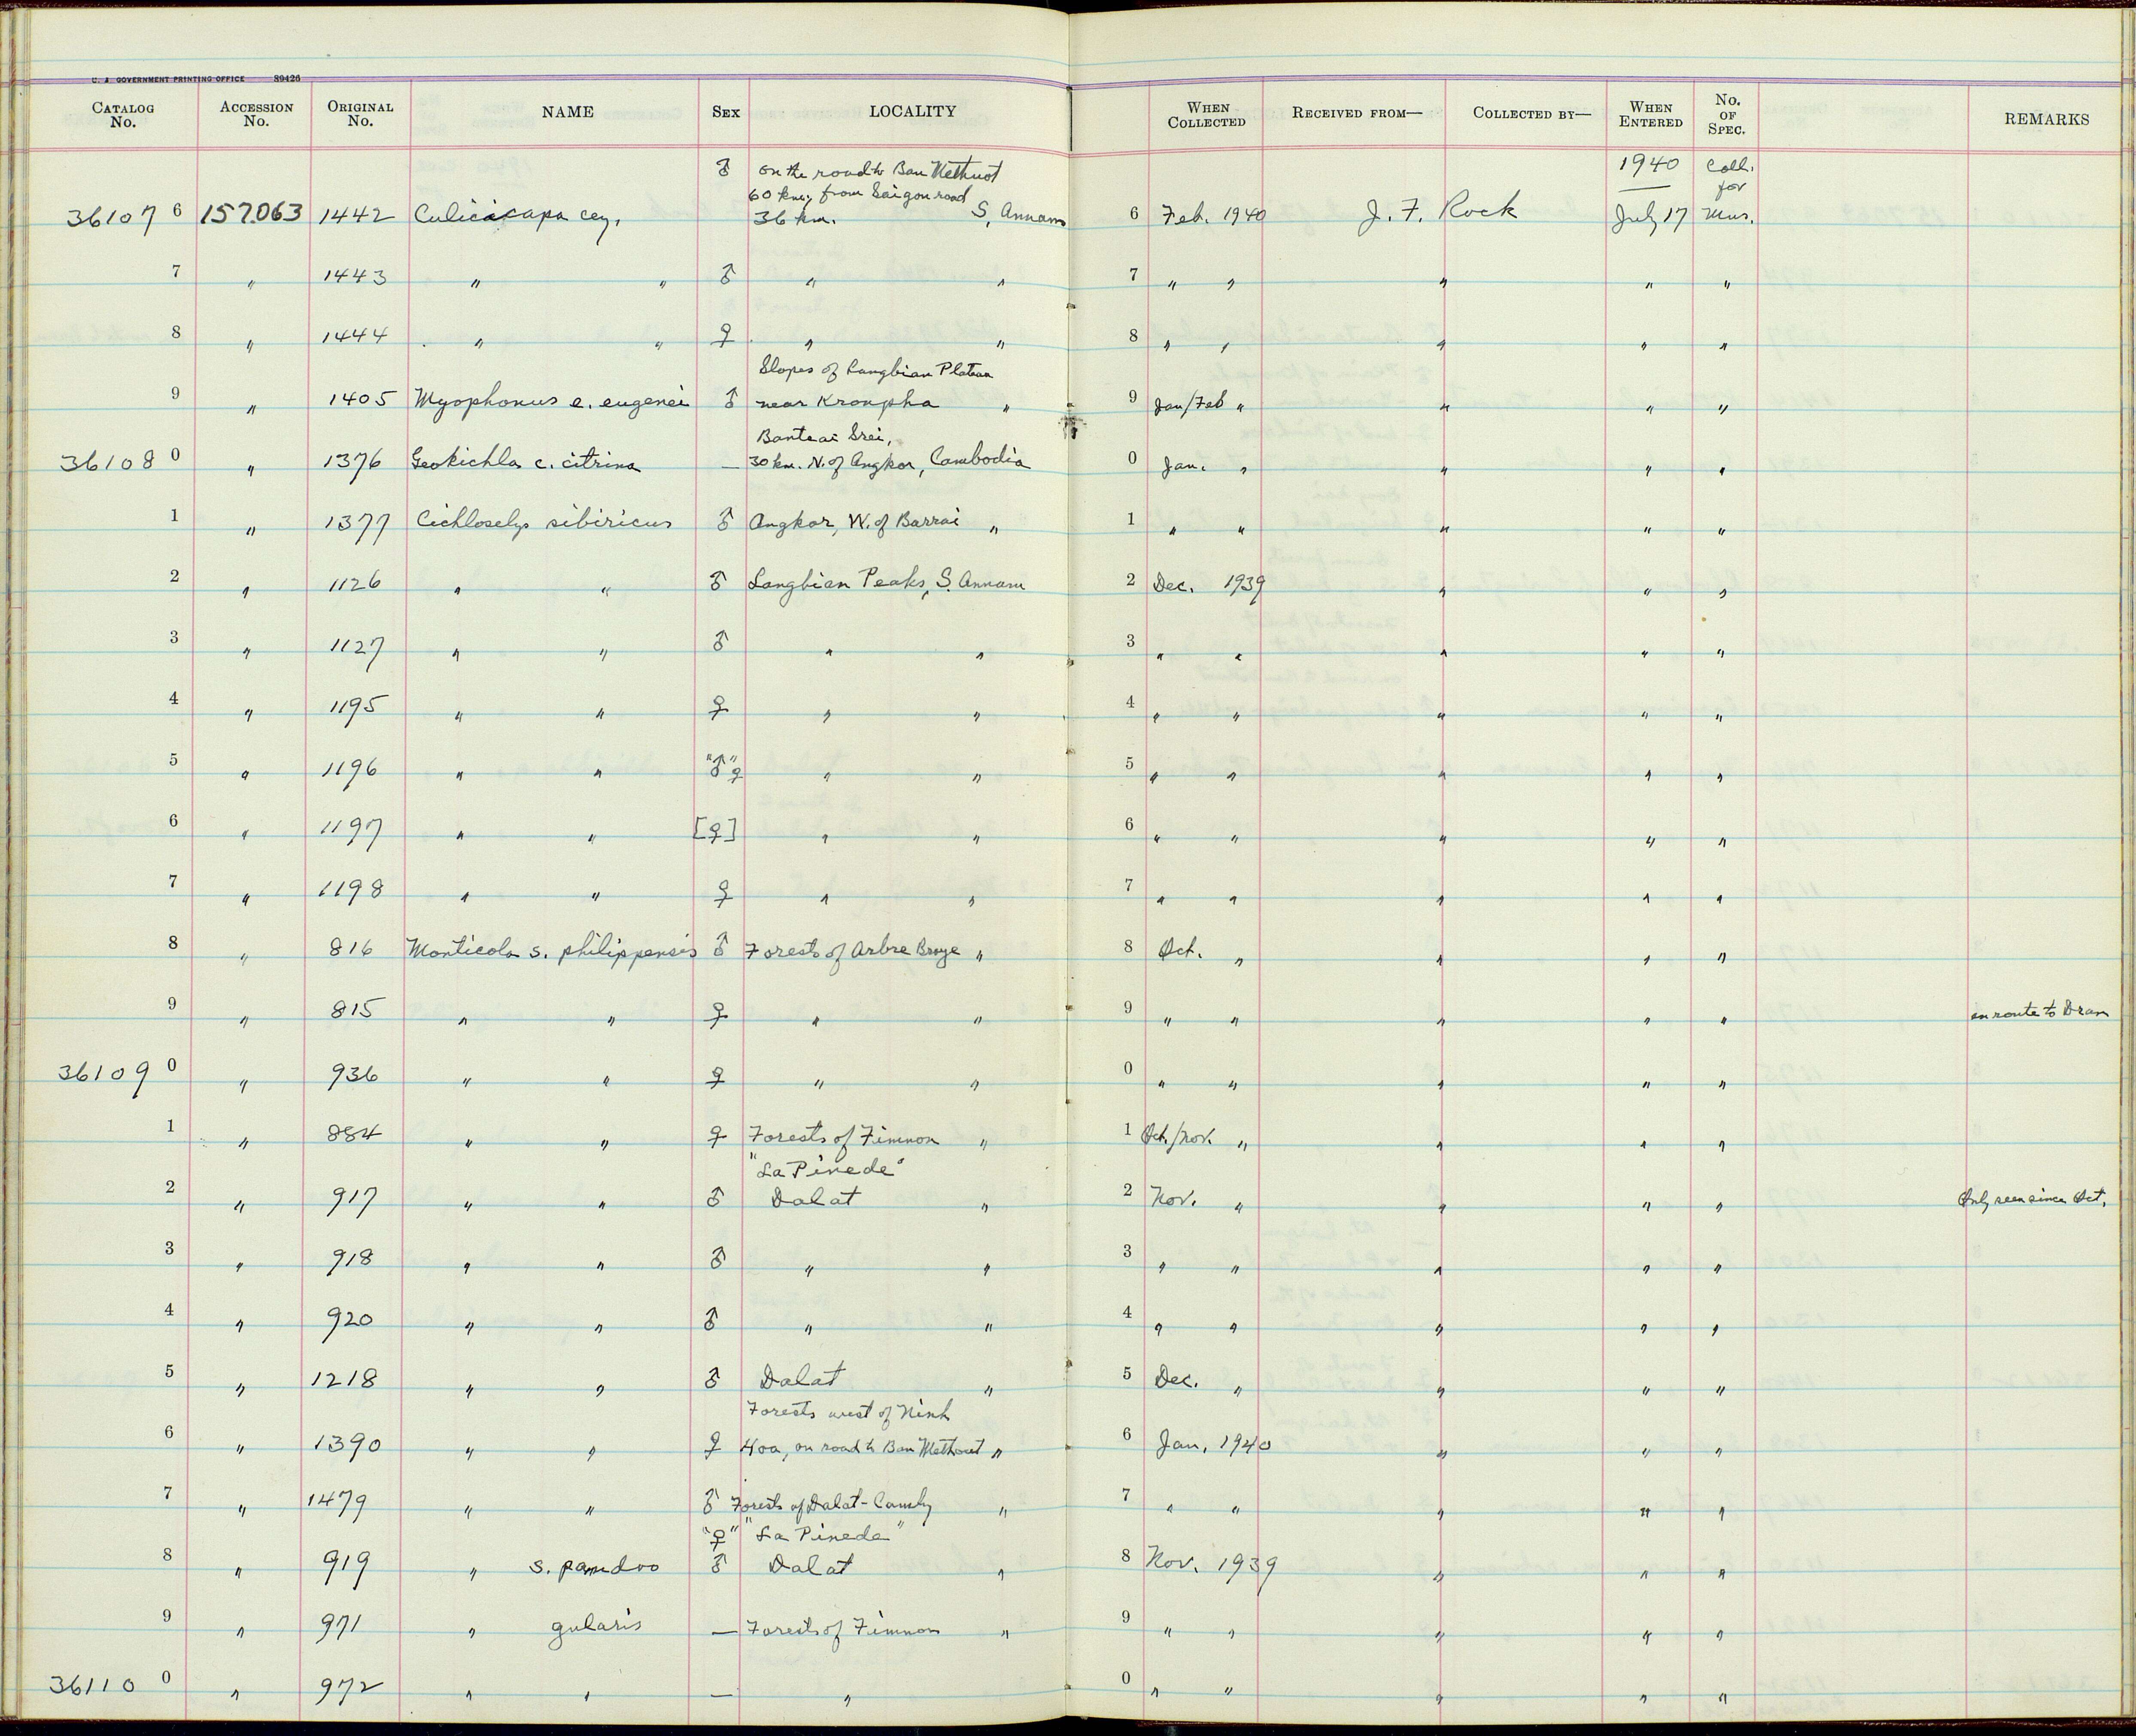 U. S. GOVERNMENT PRINTING OFFICE 89426
CATALOG No. ACCESSION No. ORIGINAL No. NAME SEX LOCALITY WHEN COLLECTED RECEIVED FROM— COLLECTED BY— WHEN ENTERED No. OF SPEC. REMARKS
♂ on the road to Ban Methuot 1940 Coll.
60 km. from Saigon road for
36107 6 157063 1442 Culicicapa cey. 36 km. S. Annam 6 Feb. 1940 J. F. Rock July 17 Mus.
7 " 1443 " " ♂ " " 7 " " " " "
8 " 1444 " " ♀ " " 8 " " " " "
Slopes of Langbian Plateau
9 " 1405 Myophonus e. eugenei ♂ near Kronpha " 9 Jan/Feb " " " "
Banteai Srei,
36108 0 " 1376 Geokichla c. citrina — 30 km. N. of Angkor, Cambodia 0 Jan. " " " "
1 " 1377 Cichloselys sibiricus ♂ Angkor, W. of Barrai " 1 " " " " "
2 " 1126 " " ♂ Langbian Peaks, S. Annam 2 Dec. 1939 " " "
3 " 1127 " " ♂ " " 3 " " " " "
4 " 1195 " " ♀ " " 4 " " " " "
5 " 1196 " " "♂" ♀ " " 5 " " " " "
6 " 1197 " " [♀] " " 6 " " " " "
7 " 1198 " " ♀ " " 7 " " " " "
8 " 816 Monticola s. philippensis ♂ Forests of Arbre Broye " 8 Oct. " " " "
9 " 815 " " ♀ " " 9 " " " " " en route to Dran
36109 0 " 936 " " ♀ " " 0 " " " " "
1 " 884 " " ♀ Forests of Fimnon " 1 Oct./Nov. " " " "
"La Pinede"
2 " 917 " " ♂ Dalat " 2 Nov. " " " " Only seen since Oct.
3 " 918 " " ♂ " " 3 " " " " "
4 " 920 " " ♂ " " 4 " " " " "
5 " 1218 " " ♂ Dalat " 5 Dec. " " " "
Forests west of Ninh
6 " 1390 " " ♀ Hoa, on road to Ban Methuot " 6 Jan. 1940 " " "
7 " 1479 " " ♂ Forests of Dalat-Camly " 7 " " " " "
"♀" "La Pinede"
8 " 919 " s. pandoo ♂ Dalat " 8 Nov. 1939 " " "
9 " 971 " gularis — Forests of Fimnon " 9 " " " " "
36110 0 " 972 " " — " 0 " " " " "